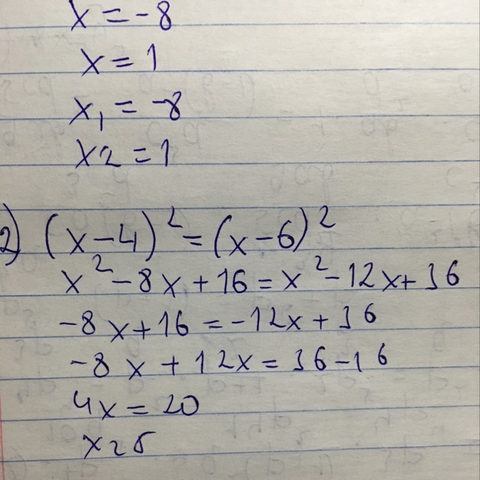 x = -8
x = 1
x₁ = -8
x2 = 1
2) (x-4)² = (x-6)²
x² - 8x + 16 = x² - 12x + 36
-8x + 16 = -12x + 36
-8x + 12x = 36 - 16
4x = 20
x = 5